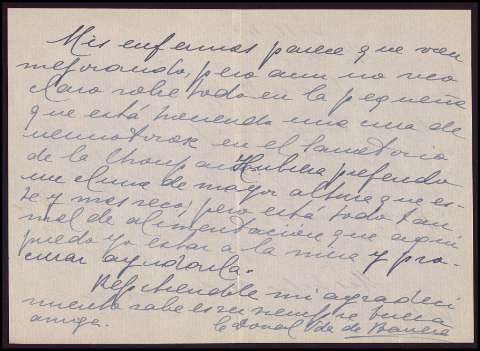 Mis enfermas parece que van
mejorando, pero aun no veo
claro sobre todo en la pequeña
que está haciendo una cura de
neumotorax en el Sanatorio
de la Hubiera preferido
un clima de mayor altura que es-
te y mas seco, pero está todo tan
mal de alimentación que aqui
puedo yo estar a la mira y pro-
curar ayudarla.
mi agradeci
miento sabe es siempre buena
amiga. de